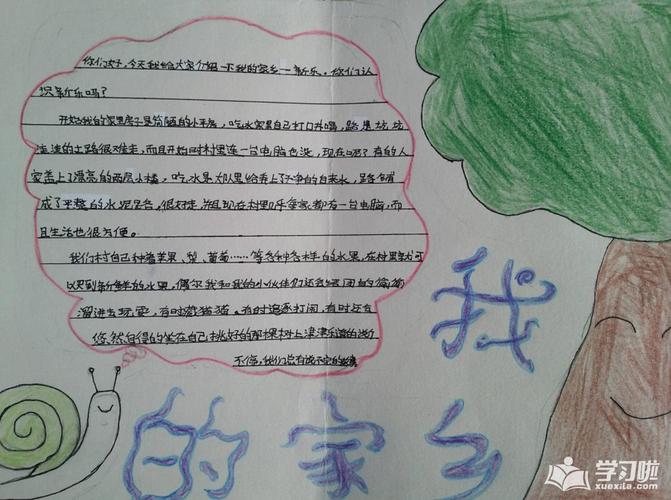 你们好，今天我给大家介绍一下我的家乡—新乐。你们认
识新乐吗？
开始我的家里房子是简陋的小平房，吃水家里自己打口井喝，路是坑坑
洼洼的土路很难走，而且开始时村里连一台电脑也没，现在呢？有的人
家盖上了漂亮的两层小楼，吃水是大队里给弄上了干净的自来水，路铺
成了平整的水泥路，很好走，并且现在村里几乎每家都有一台电脑，而
且生活也很方便。
我们村自己种着苹果、梨、葡萄……等各种各样的水果，在村里就可
以吃到新鲜的水果，偶尔我和我的小伙伴们还会
溜进去玩耍，有时捉猫猫。有时追逐打闹，有时还会
悠然自得的坐在自己挑好的那棵树上津津乐道的谈个
不停，我们总有说不完的
我
的家乡
学习啦
xuexila.com